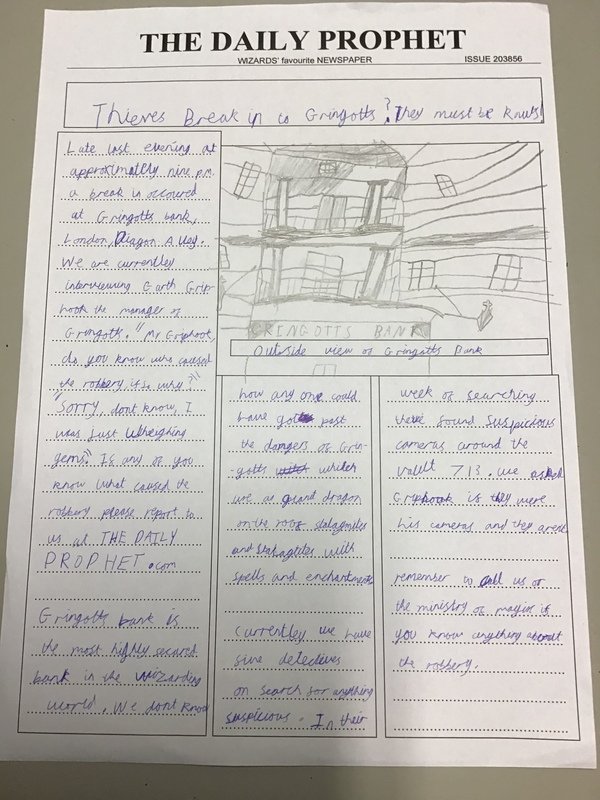 THE DAILY PROPHET
WIZARDS' favourite NEWSPAPER
ISSUE 203856
Thieves Break in to Gringotts? They must be knuts!
Late last evening at
approximately nine p.m.
a break in occoured
at Gringotts bank,
London, Diagon Alley.
We are currentley
interviewing Garth Grip-
hook the manager of
Gringotts. "Mr Griphook,
do you know who caused
the robbery if so why?"
"SORRY, dont know, I
was Just wheighing
gems". If any of you
know what caused the
robbery please report to
us at THE DAILY
PROPHET.com
Gringotts bank is
the most highly secured
bank in the wizarding
world. We dont know
GRINGOTTS BANK
Outside view of Gringotts Bank
how any one could
have got past
the dangers of Grin-
-gotts which
we a guard dragon
on the roof stalagmites
and stalagtites with
spells and enchantments
Currentley we have
five detectives
on search for anything
suspicious. In their
week of searching
theve found suspicious
cameras around the
vault 713. we asked
Griphook if they were
his cameras and they arent
remember to call us or
the ministry of magic if
you know anything about
the robbery.